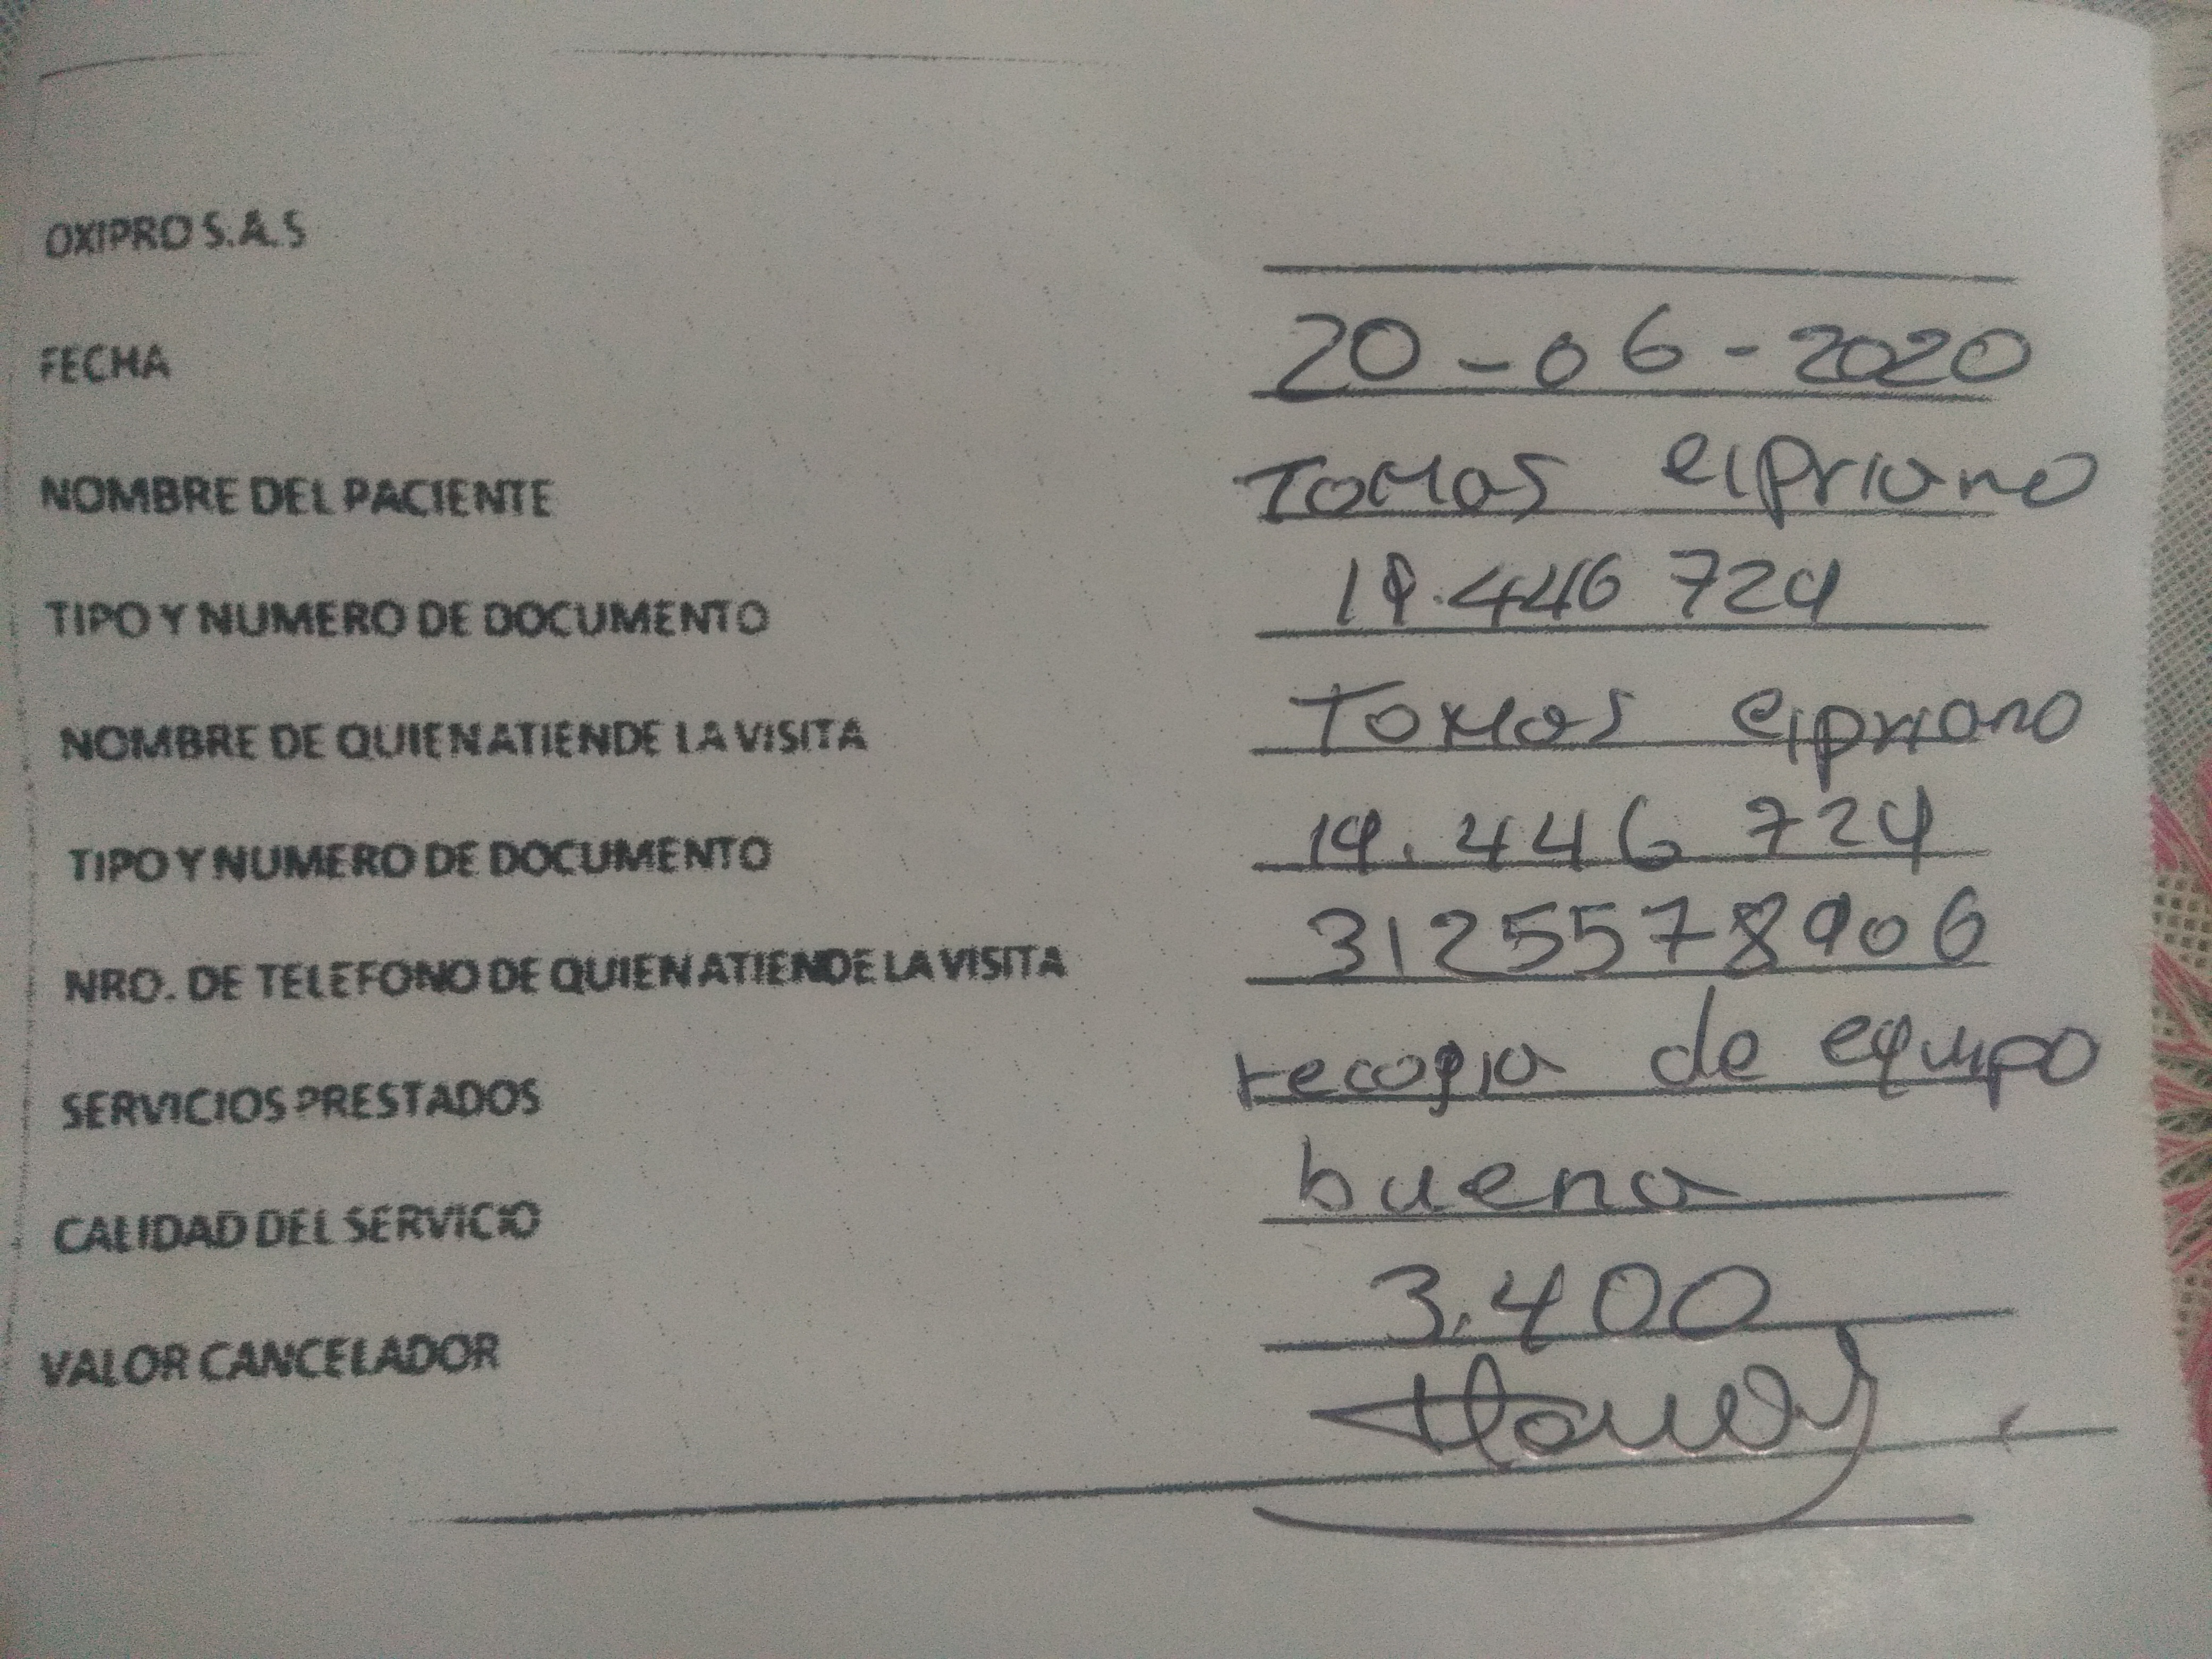 OXIPRO S.A.S
FECHA 20-06-2020
NOMBRE DEL PACIENTE TOMAS CIPRIANO
TIPO Y NUMERO DE DOCUMENTO 19.446 724
NOMBRE DE QUIEN ATIENDE LA VISITA TOMAS CIPRIANO
TIPO Y NUMERO DE DOCUMENTO 19.446 724
NRO. DE TELEFONO DE QUIEN ATIENDE LA VISITA 3125578906
SERVICIOS PRESTADOS recogia de equipo
CALIDAD DEL SERVICIO buena
VALOR CANCELADOR 3.400